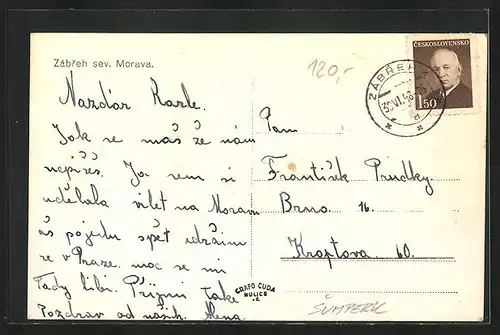 Zábřeh sev. Morava.
120,-
ČESKOSLOVENSKO
1'50
ZÁBŘEH
30.VI.48
Nazdar Karle.
Jak se máš že nám
nepíšeš. Já jsem si
udělala vílet na Moravu
až pojedu spět
se v Praze. moc se mi
tady líbí. Přijmi také
Pozdrav od našich. Alena
Pan
František Prudky
Brno 16.
Kroptova 60.
GRAFO ČUDA
HOLICE
ŠUMPERK